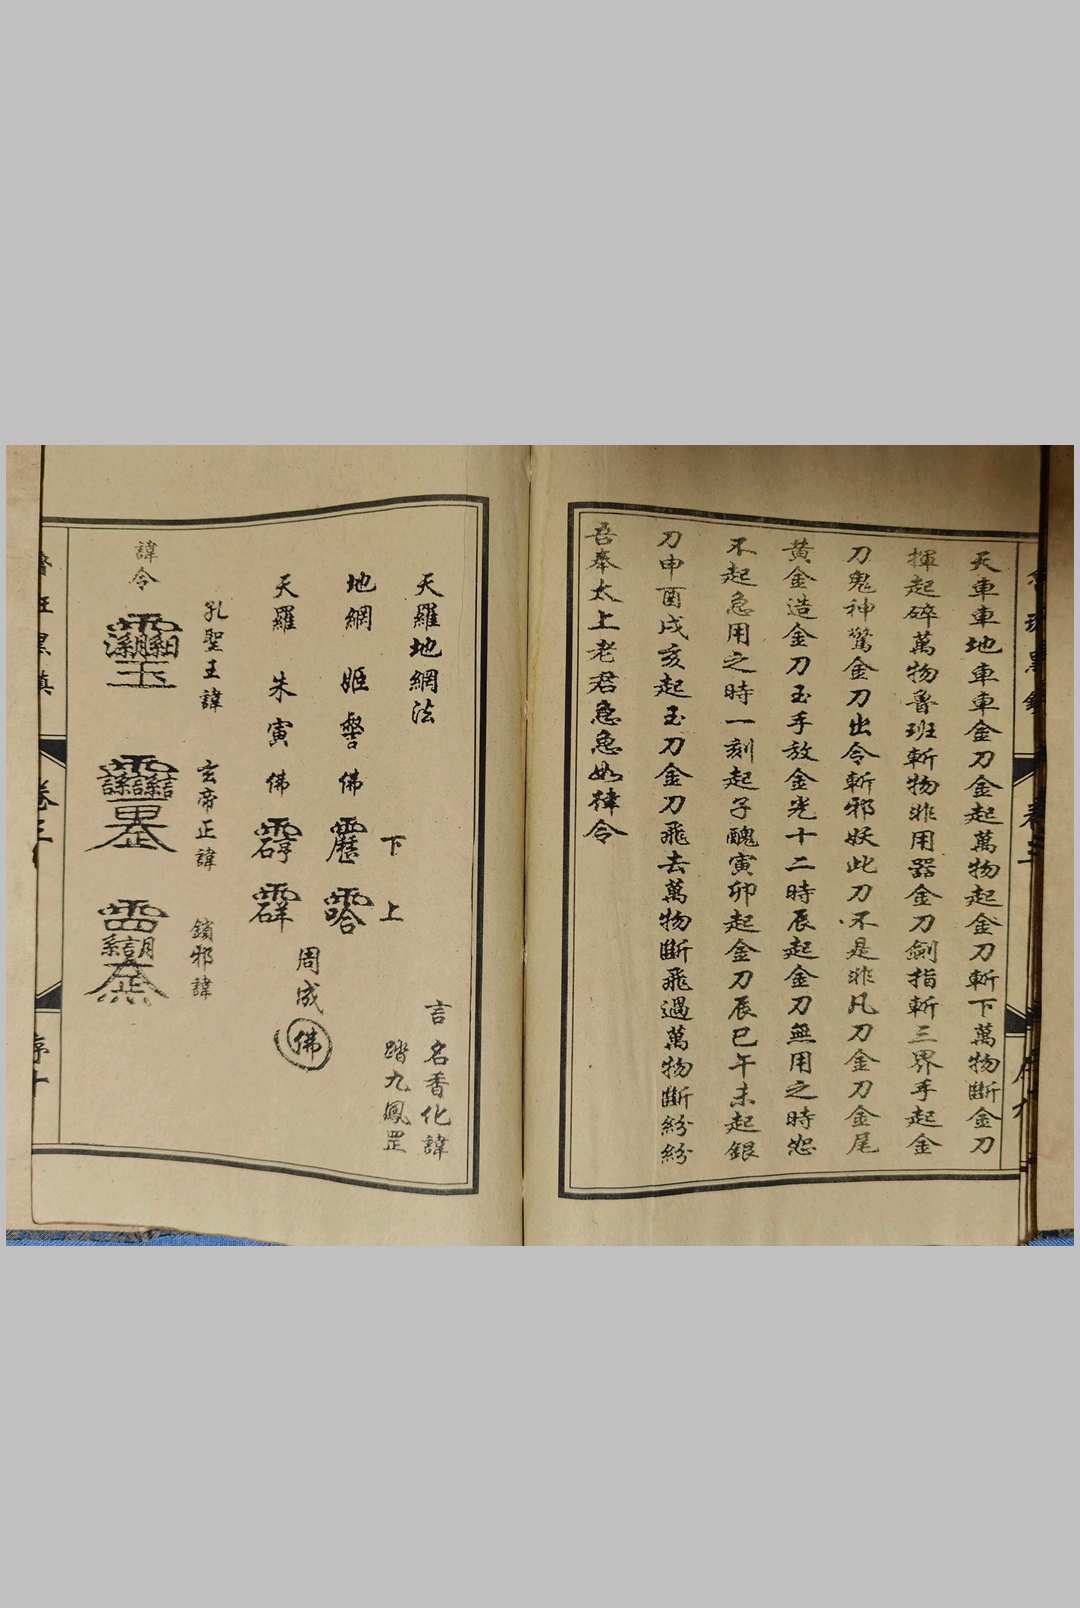 天車車地車車金刀金起萬物起金刀斬下萬物斷金刀
揮起碎萬物魯班斬物非用器金刀劍指斬三界手起金
刀鬼神驚金刀出令斬邪妖此刀不是非凡刀金刀金尾
黃金造金刀玉手放金光十二時辰起金刀無用之時怨
不起急用之時一刻起子醜寅卯起金刀辰巳午未起銀
刀申酉戌亥起玉刀金刀飛去萬物斷飛過萬物斷紛紛
吾奉太上老君急急如律令
天羅地網法
言名香化諱
踏九鳳罡
下 上
地網 姬 佛
天羅 朱寅佛
周成佛
孔聖王諱 玄帝正諱 鎖邪諱
諱令
卷三